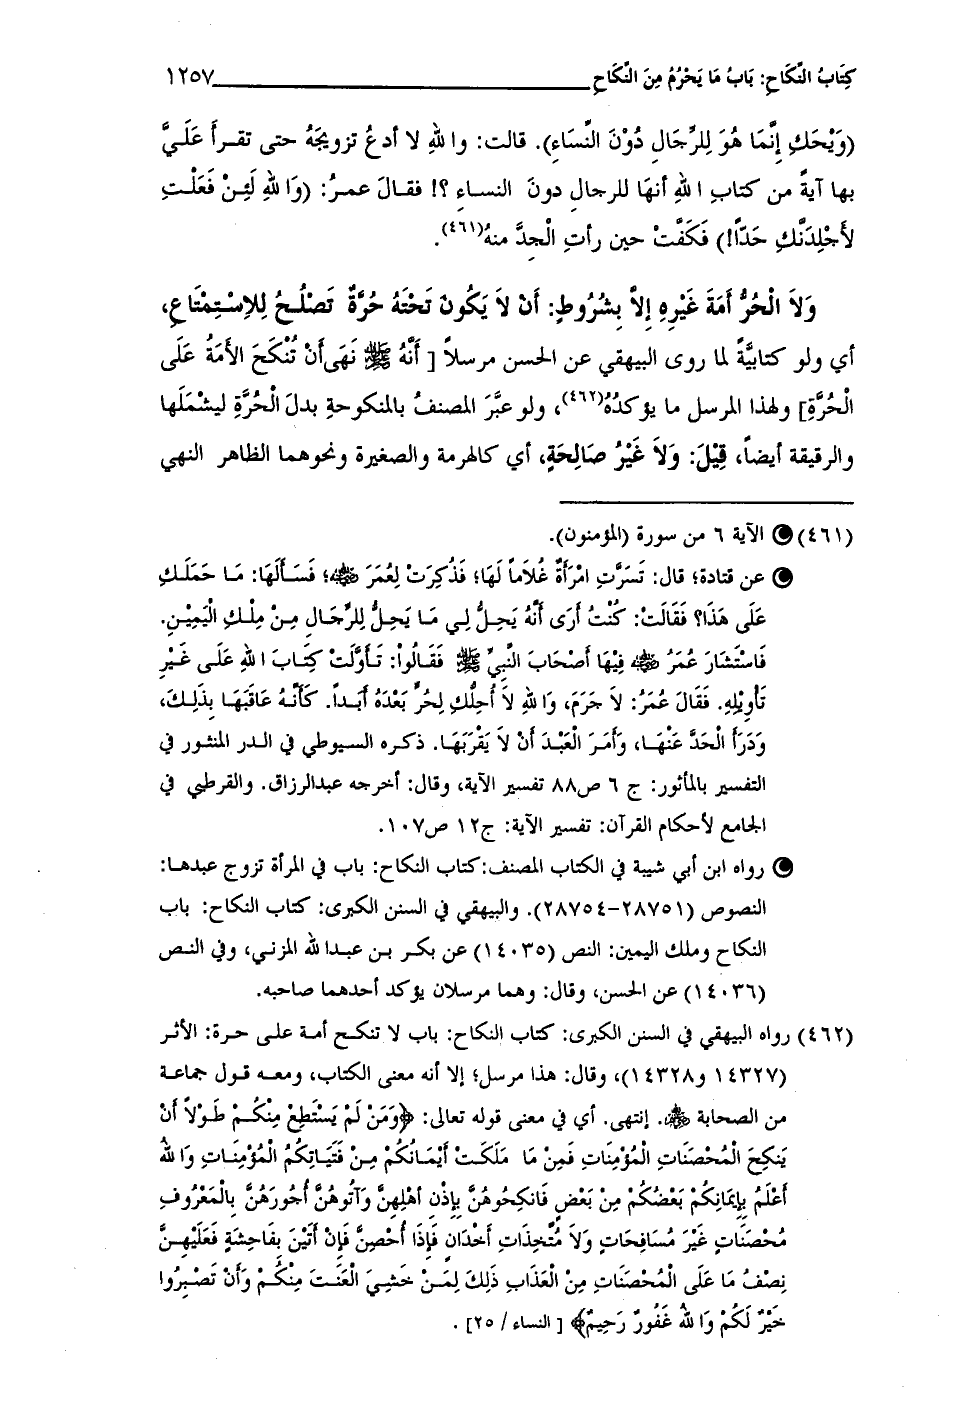 كِتَابُ النِّكَاحِ: بَابُ مَا يَحْرُمُ مِنَ النِّكَاحِ ١٢٥٧
(وَيْحَكِ إِنَّمَا هُوَ لِلرِّجَالِ دُوْنَ النِّسَاءِ). قالت: واللهِ لا أدعُ تزويجَهُ حتى تقرأَ عَلَيَّ
بها آيةً من كتابِ اللهِ أنهَا للرجالِ دونَ النساءِ ؟! فقالَ عمرُ: (وَاللهِ لَئِنْ فَعَلْتِ
لأَجْلِدَنَّكِ حَدّاً!) فَكَفَّتْ حين رأتِ الْجِدَّ منهُ(٤٦١).
وَلاَ الْحُرُّ أَمَةَ غَيْرِهِ إِلاَّ بِشُرُوطٍ: أَنْ لاَ يَكُونَ تَحْتَهُ حُرَّةٌ تَصْلُحُ لِلاِسْتِمْتَاعِ،
أي ولو كتابيَّةً لما روى البيهقي عن الحسن مرسلاً [ أَنَّهُ ﷺ نَهَى أَنْ تُنْكَحَ الأَمَةُ عَلَى
الْحُرَّةِ] ولهذا المرسل ما يؤكدُهُ(٤٦٢)، ولو عبَّرَ المصنفُ بالمنكوحةِ بدلَ الْحُرَّةِ ليشْمَلَها
والرقيقة أيضاً، قِيْلَ: وَلاَ غَيْرُ صَالِحَةٍ، أي كالهرمة والصغيرة ونحوهما الظاهر النهي
(٤٦١) الآية ٦ من سورة (المؤمنون).
عن قتادة؛ قال: تَسَرَّتِ امْرَأَةٌ غُلاَماً لَهَا؛ فَذُكِرَتْ لِعُمَرَ ﷺ؛ فَسَأَلَهَا: مَا حَمَلَكِ
عَلَى هَذَا؟ فَقَالَتْ: كُنْتُ أَرَى أَنَّهُ يَحِلُّ لِي مَا يَحِلُّ لِلرِّجَالِ مِنْ مِلْكِ الْيَمِيْنِ.
فَاسْتَشَارَ عُمَرُ ﷺ فِيْهَا أَصْحَابَ النَّبِيِّ ﷺ فَقَالُواْ: تَأَوَّلَتْ كِتَابَ اللهِ عَلَى غَيْرِ
تَأْوِيْلِهِ. فَقَالَ عُمَرُ: لاَ جَرَمَ، وَاللهِ لاَ أُحِلُّكِ لِحُرٍّ بَعْدَهُ أَبَداً. كَأَنَّهُ عَاقَبَهَا بِذَلِكَ،
وَدَرَأَ الْحَدَّ عَنْهَا، وَأَمَرَ الْعَبْدَ أَنْ لاَ يَقْرَبَهَا. ذكره السيوطي في الدر المنثور في
التفسير بالمأثور: ج ٦ ص٨٨ تفسير الآية، وقال: أخرجه عبدالرزاق. والقرطبي في
الجامع لأحكام القرآن: تفسير الآية: ج١٢ ص١٠٧.
رواه ابن أبي شيبة في الكتاب المصنف:كتاب النكاح: باب في المرأة تزوج عبدها:
النصوص (٢٨٧٥١-٢٨٧٥٤). والبيهقي في السنن الكبرى: كتاب النكاح: باب
النكاح وملك اليمين: النص (١٤٠٣٥) عن بكر بن عبدالله المزني، وفي النص
(١٤٠٣٦) عن الحسن، وقال: وهما مرسلان يؤكد أحدهما صاحبه.
(٤٦٢) رواه البيهقي في السنن الكبرى: كتاب النكاح: باب لا تنكح أمة على حرة: الأثر
(١٤٣٢٧ و١٤٣٢٨)، وقال: هذا مرسل؛ إلا أنه معنى الكتاب، ومعه قول جماعة
من الصحابة ﷺ. إنتهى. أي في معنى قوله تعالى: ﴿وَمَنْ لَمْ يَسْتَطِعْ مِنْكُمْ طَوْلاً أَنْ
يَنكِحَ الْمُحْصَنَاتِ الْمُؤْمِنَاتِ فَمِنْ مَا مَلَكَتْ أَيْمَانُكُمْ مِنْ فَتَيَاتِكُمُ الْمُؤْمِنَاتِ وَاللهُ
أَعْلَمُ بِإِيمَانِكُمْ بَعْضُكُمْ مِنْ بَعْضٍ فَانكِحُوهُنَّ بِإِذْنِ أَهْلِهِنَّ وَآتُوهُنَّ أُجُورَهُنَّ بِالْمَعْرُوفِ
مُحْصَنَاتٍ غَيْرَ مُسَافِحَاتٍ وَلاَ مُتَّخِذَاتِ أَخْدَانٍ فَإِذَا أُحْصِنَّ فَإِنْ أَتَيْنَ بِفَاحِشَةٍ فَعَلَيْهِنَّ
نِصْفُ مَا عَلَى الْمُحْصَنَاتِ مِنْ الْعَذَابِ ذَلِكَ لِمَنْ خَشِيَ الْعَنَتَ مِنْكُمْ وَأَنْ تَصْبِرُوا
خَيْرٌ لَكُمْ وَاللهُ غَفُورٌ رَحِيمٌ﴾ [ النساء / ٢٥] .